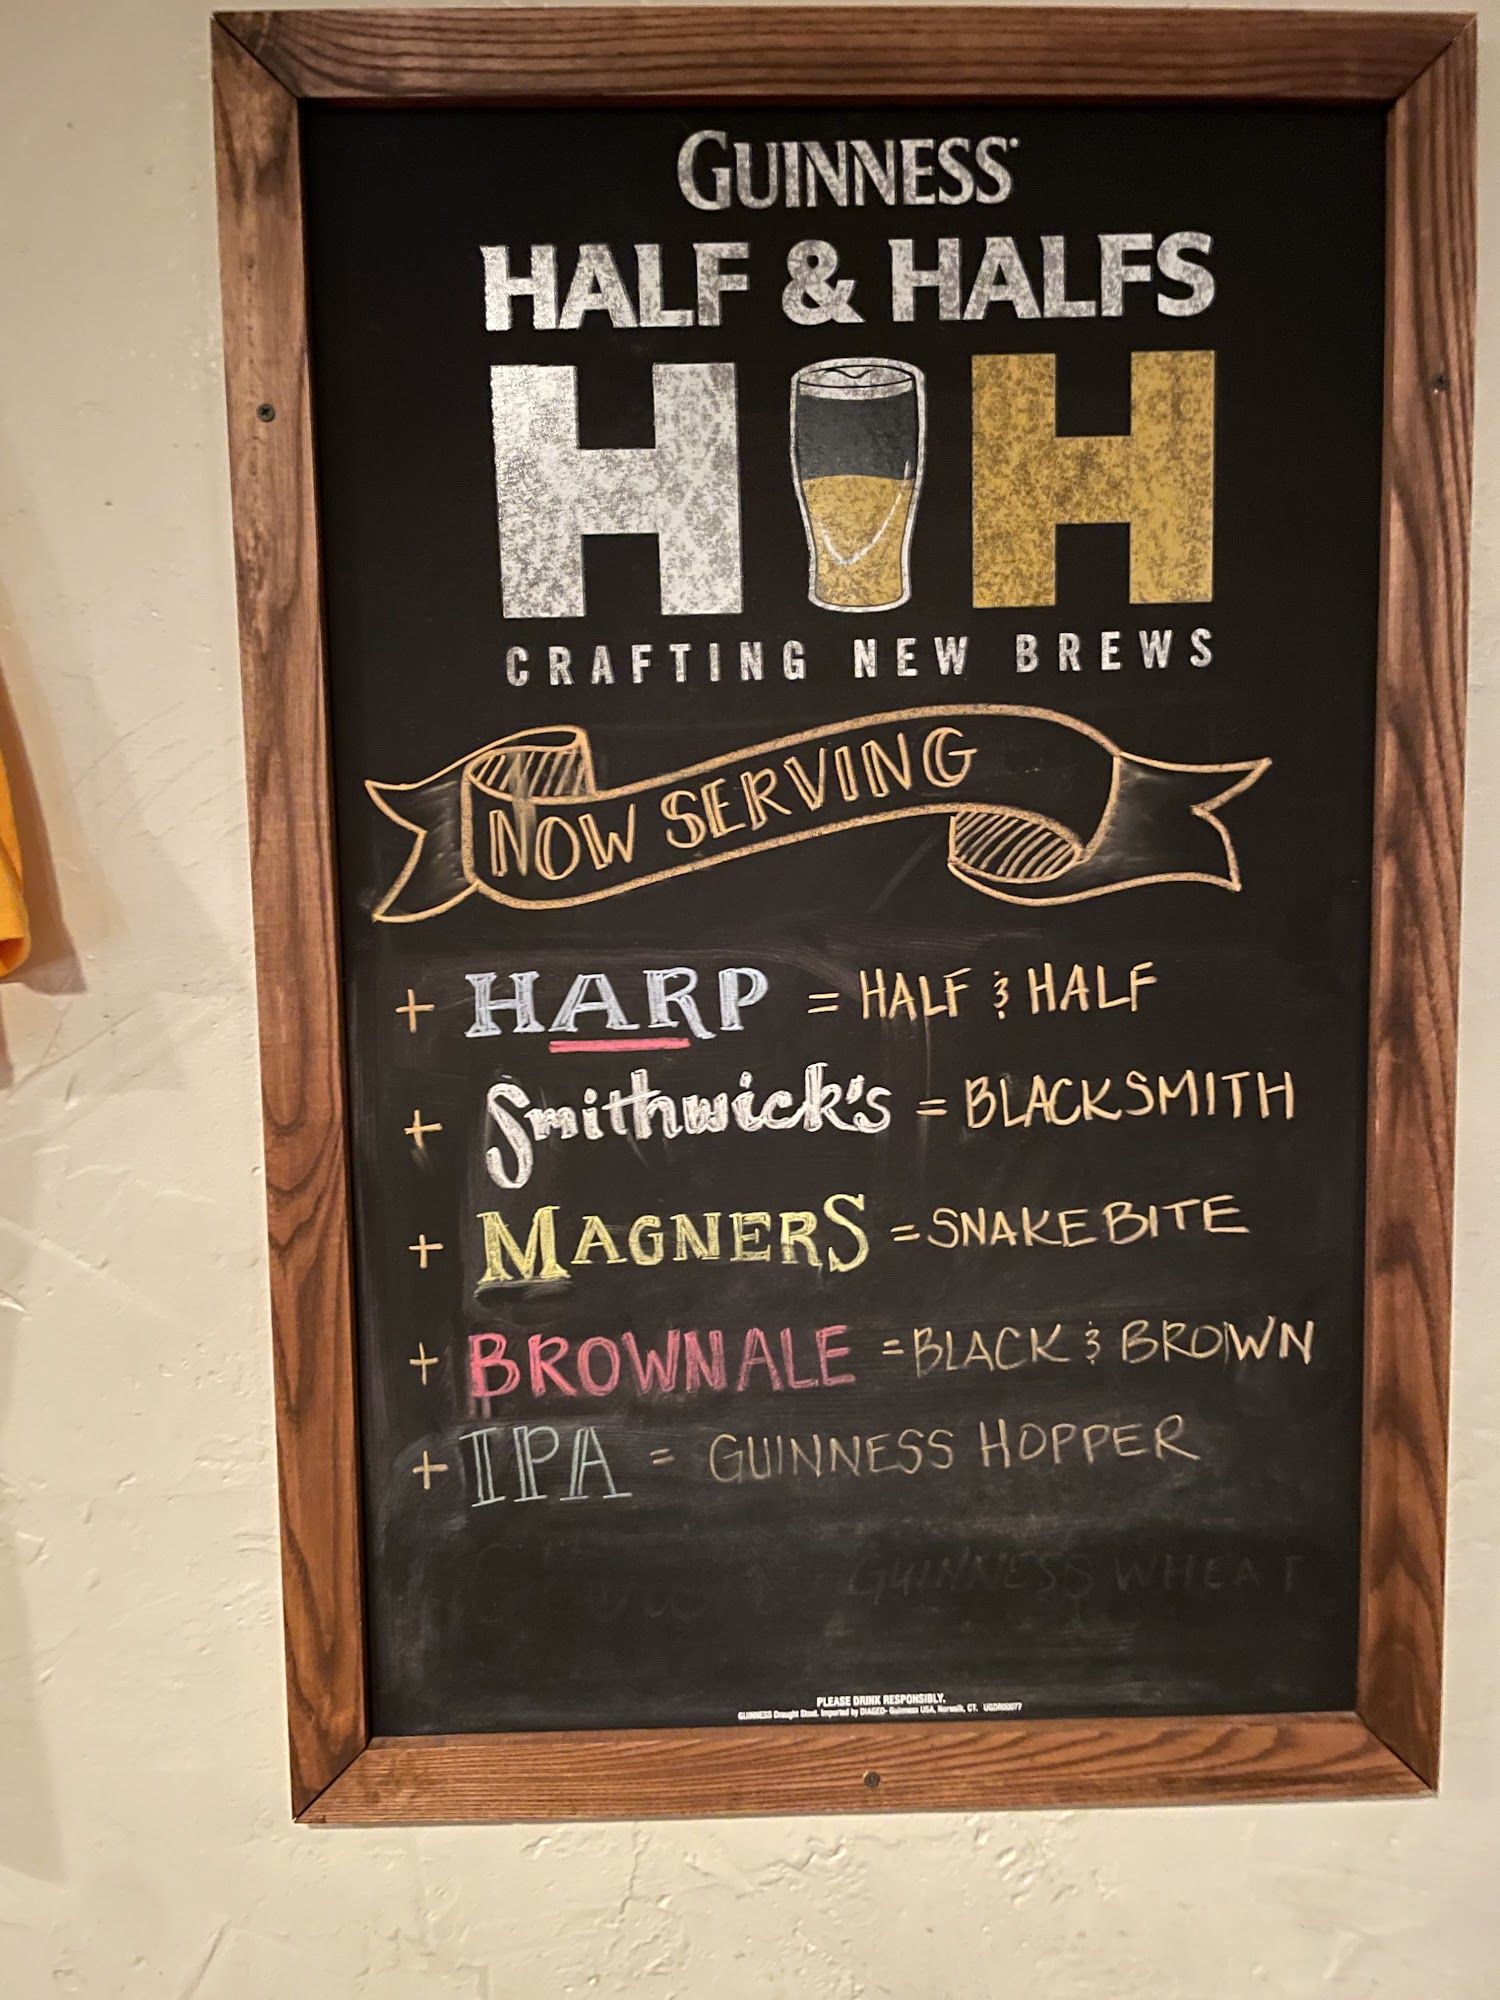 GUINNESS
HALF & HALFS
H H
CRAFTING NEW BREWS
NOW SERVING
+ HARP = HALF & HALF
+ Smithwick's = BLACKSMITH
+ MAGNERS = SNAKEBITE
+ BROWN ALE = BLACK & BROWN
+ IPA = GUINNESS HOPPER
GUINNESS WHEAT
PLEASE DRINK RESPONSIBLY.
GUINNESS Draught Stout. Imported by DIAGEO- Guinness USA, Norwalk, CT.